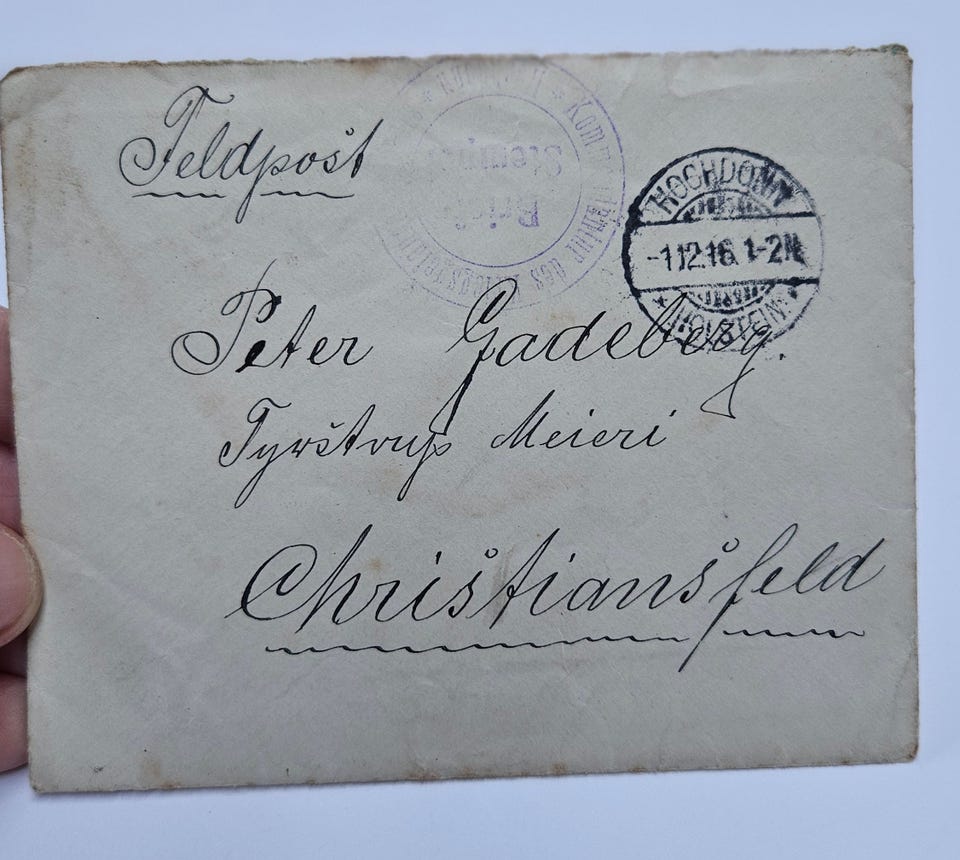 Feldpost
Brief
Stempel
HOCHDONN
-1.12.16. 1-2N
* HOLSTEIN. *
Peter Gadeberg.
Tyrstrup Meieri
Christiansfeld